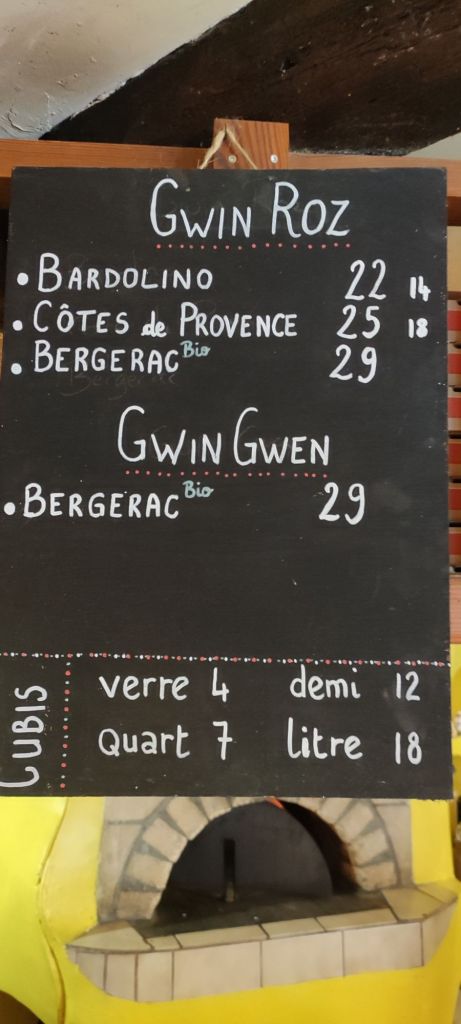 GWIN ROZ
• BARDOLINO 22 14
• CÔTES de PROVENCE 25 18
• BERGERAC Bio 29
GWIN GWEN
• BERGERAC Bio 29
CUBIS
verre 4 demi 12
Quart 7 litre 18